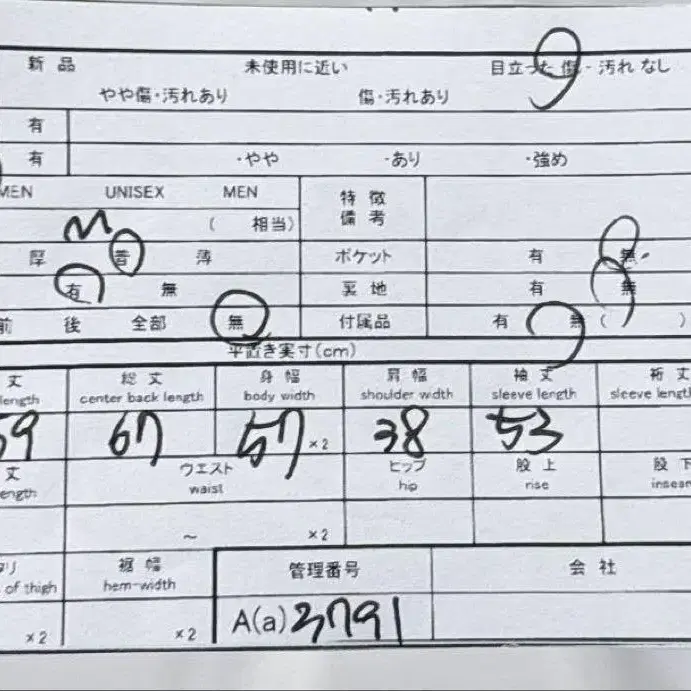 新品 未使用に近い 目立った傷・汚れなし
やや傷・汚れあり 傷・汚れあり
有
有 ・やや ・あり ・強め
MEN UNISEX MEN 特徴
M ( 相当) 備考
厚 普 薄 ポケット 有 無
有 無 裏地 有 無
前 後 全部 無 付属品 有 無 ( )
平置き実寸(cm)
丈 総丈 身幅 肩幅 袖丈 裄丈
length center back length body width shoulder width sleeve length sleeve length
59 67 57 ×2 38 53
丈 ウエスト ヒップ 股上 股下
length waist hip rise inseam
~ ×2
裾幅 管理番号 会社
of thigh hem-width
×2 ×2 A(a)3791